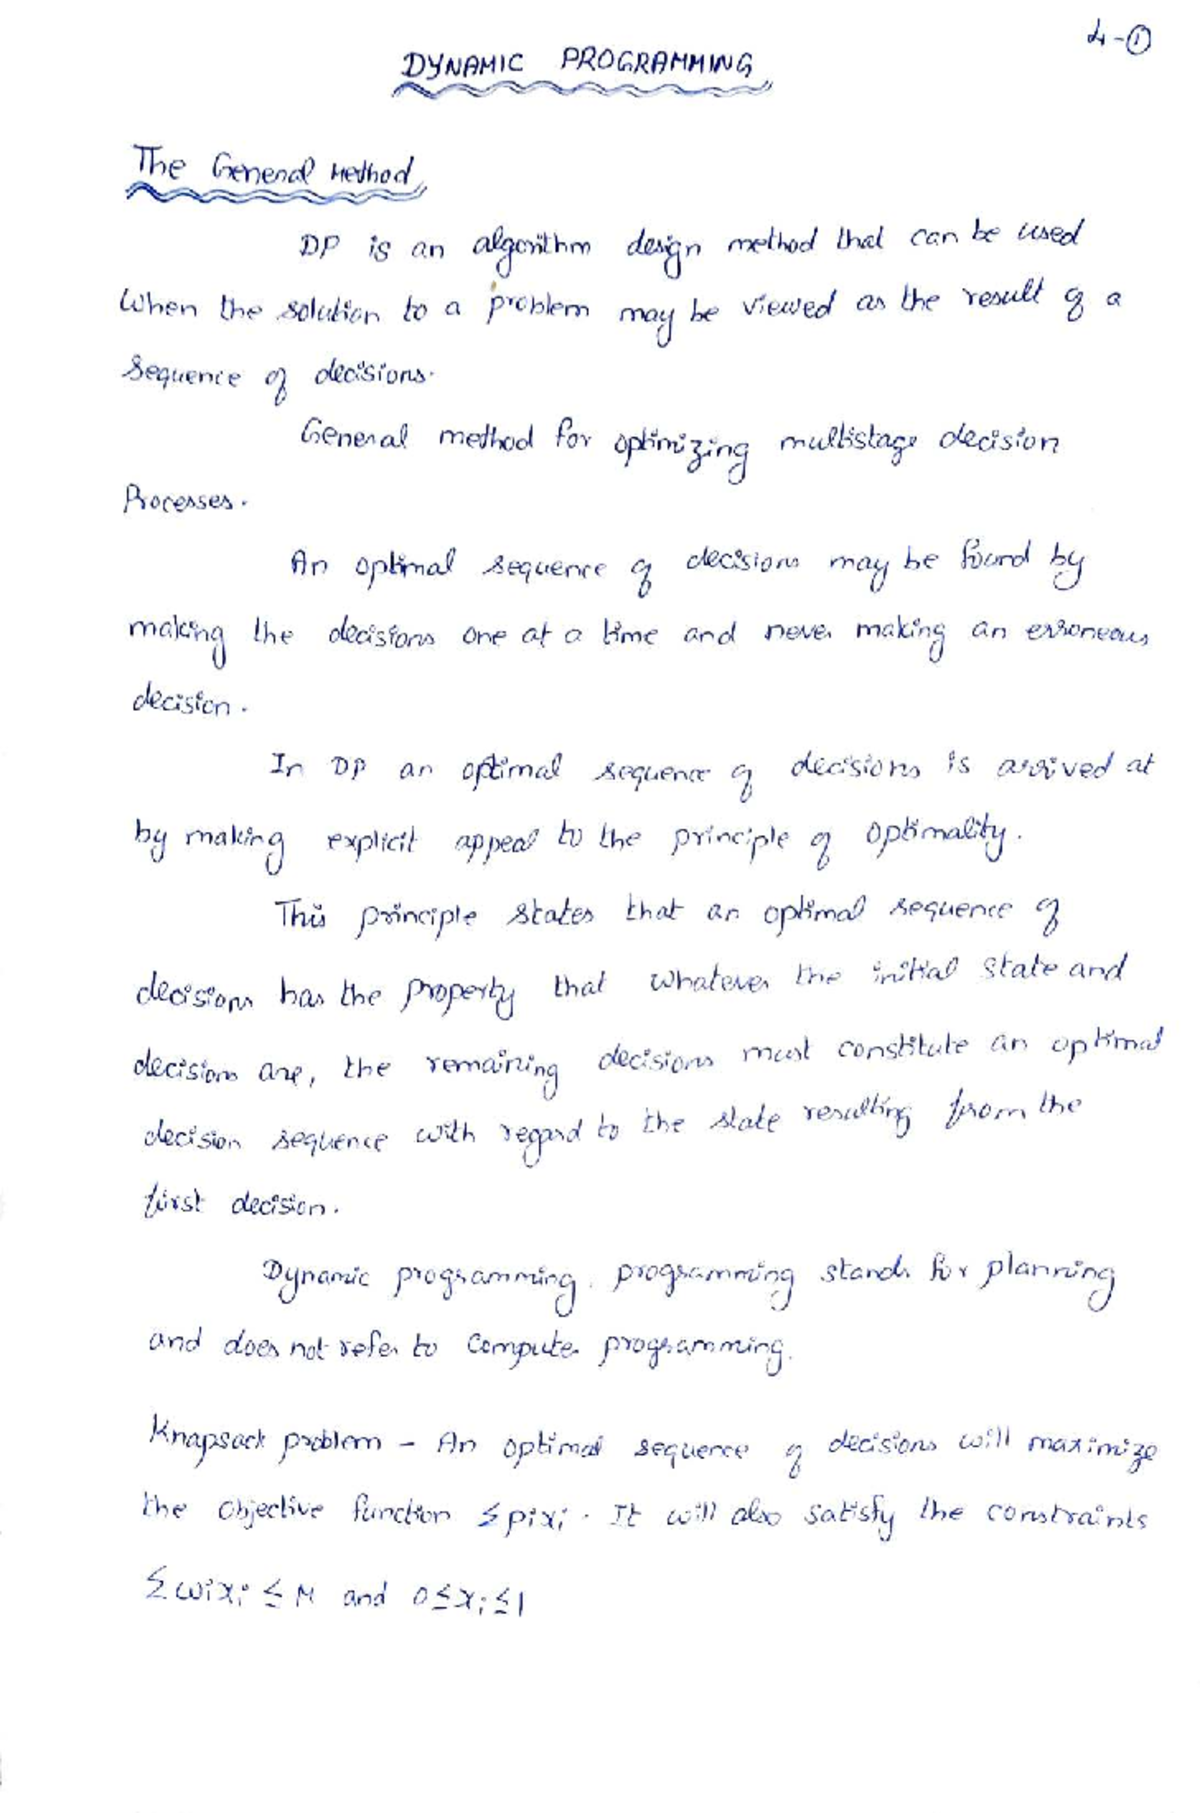 4-①
DYNAMIC PROGRAMMING
The General Method
DP is an algorithm design method that can be used
When the solution to a problem may be viewed as the result of a
Sequence of decisions.
General method for optimizing multistage decision
Processes.
An optimal sequence of decisions may be found by
making the decisions one at a time and never making an erroneous
decision.
In DP an optimal sequence of decisions is arrived at
by making explicit appeal to the principle of optimality.
This principle states that an optimal sequence of
decisions has the property that whatever the initial state and
decisions are, the remaining decisions must constitute an optimal
decision sequence with regard to the state resulting from the
first decision.
Dynamic programming. programming stands for planning
and does not refer to Computer programming.
Knapsack problem - An optimal sequence of decisions will maximize
the objective function ≤pixi. It will also satisfy the constraints
Σwixi ≤ M and 0≤xi≤1